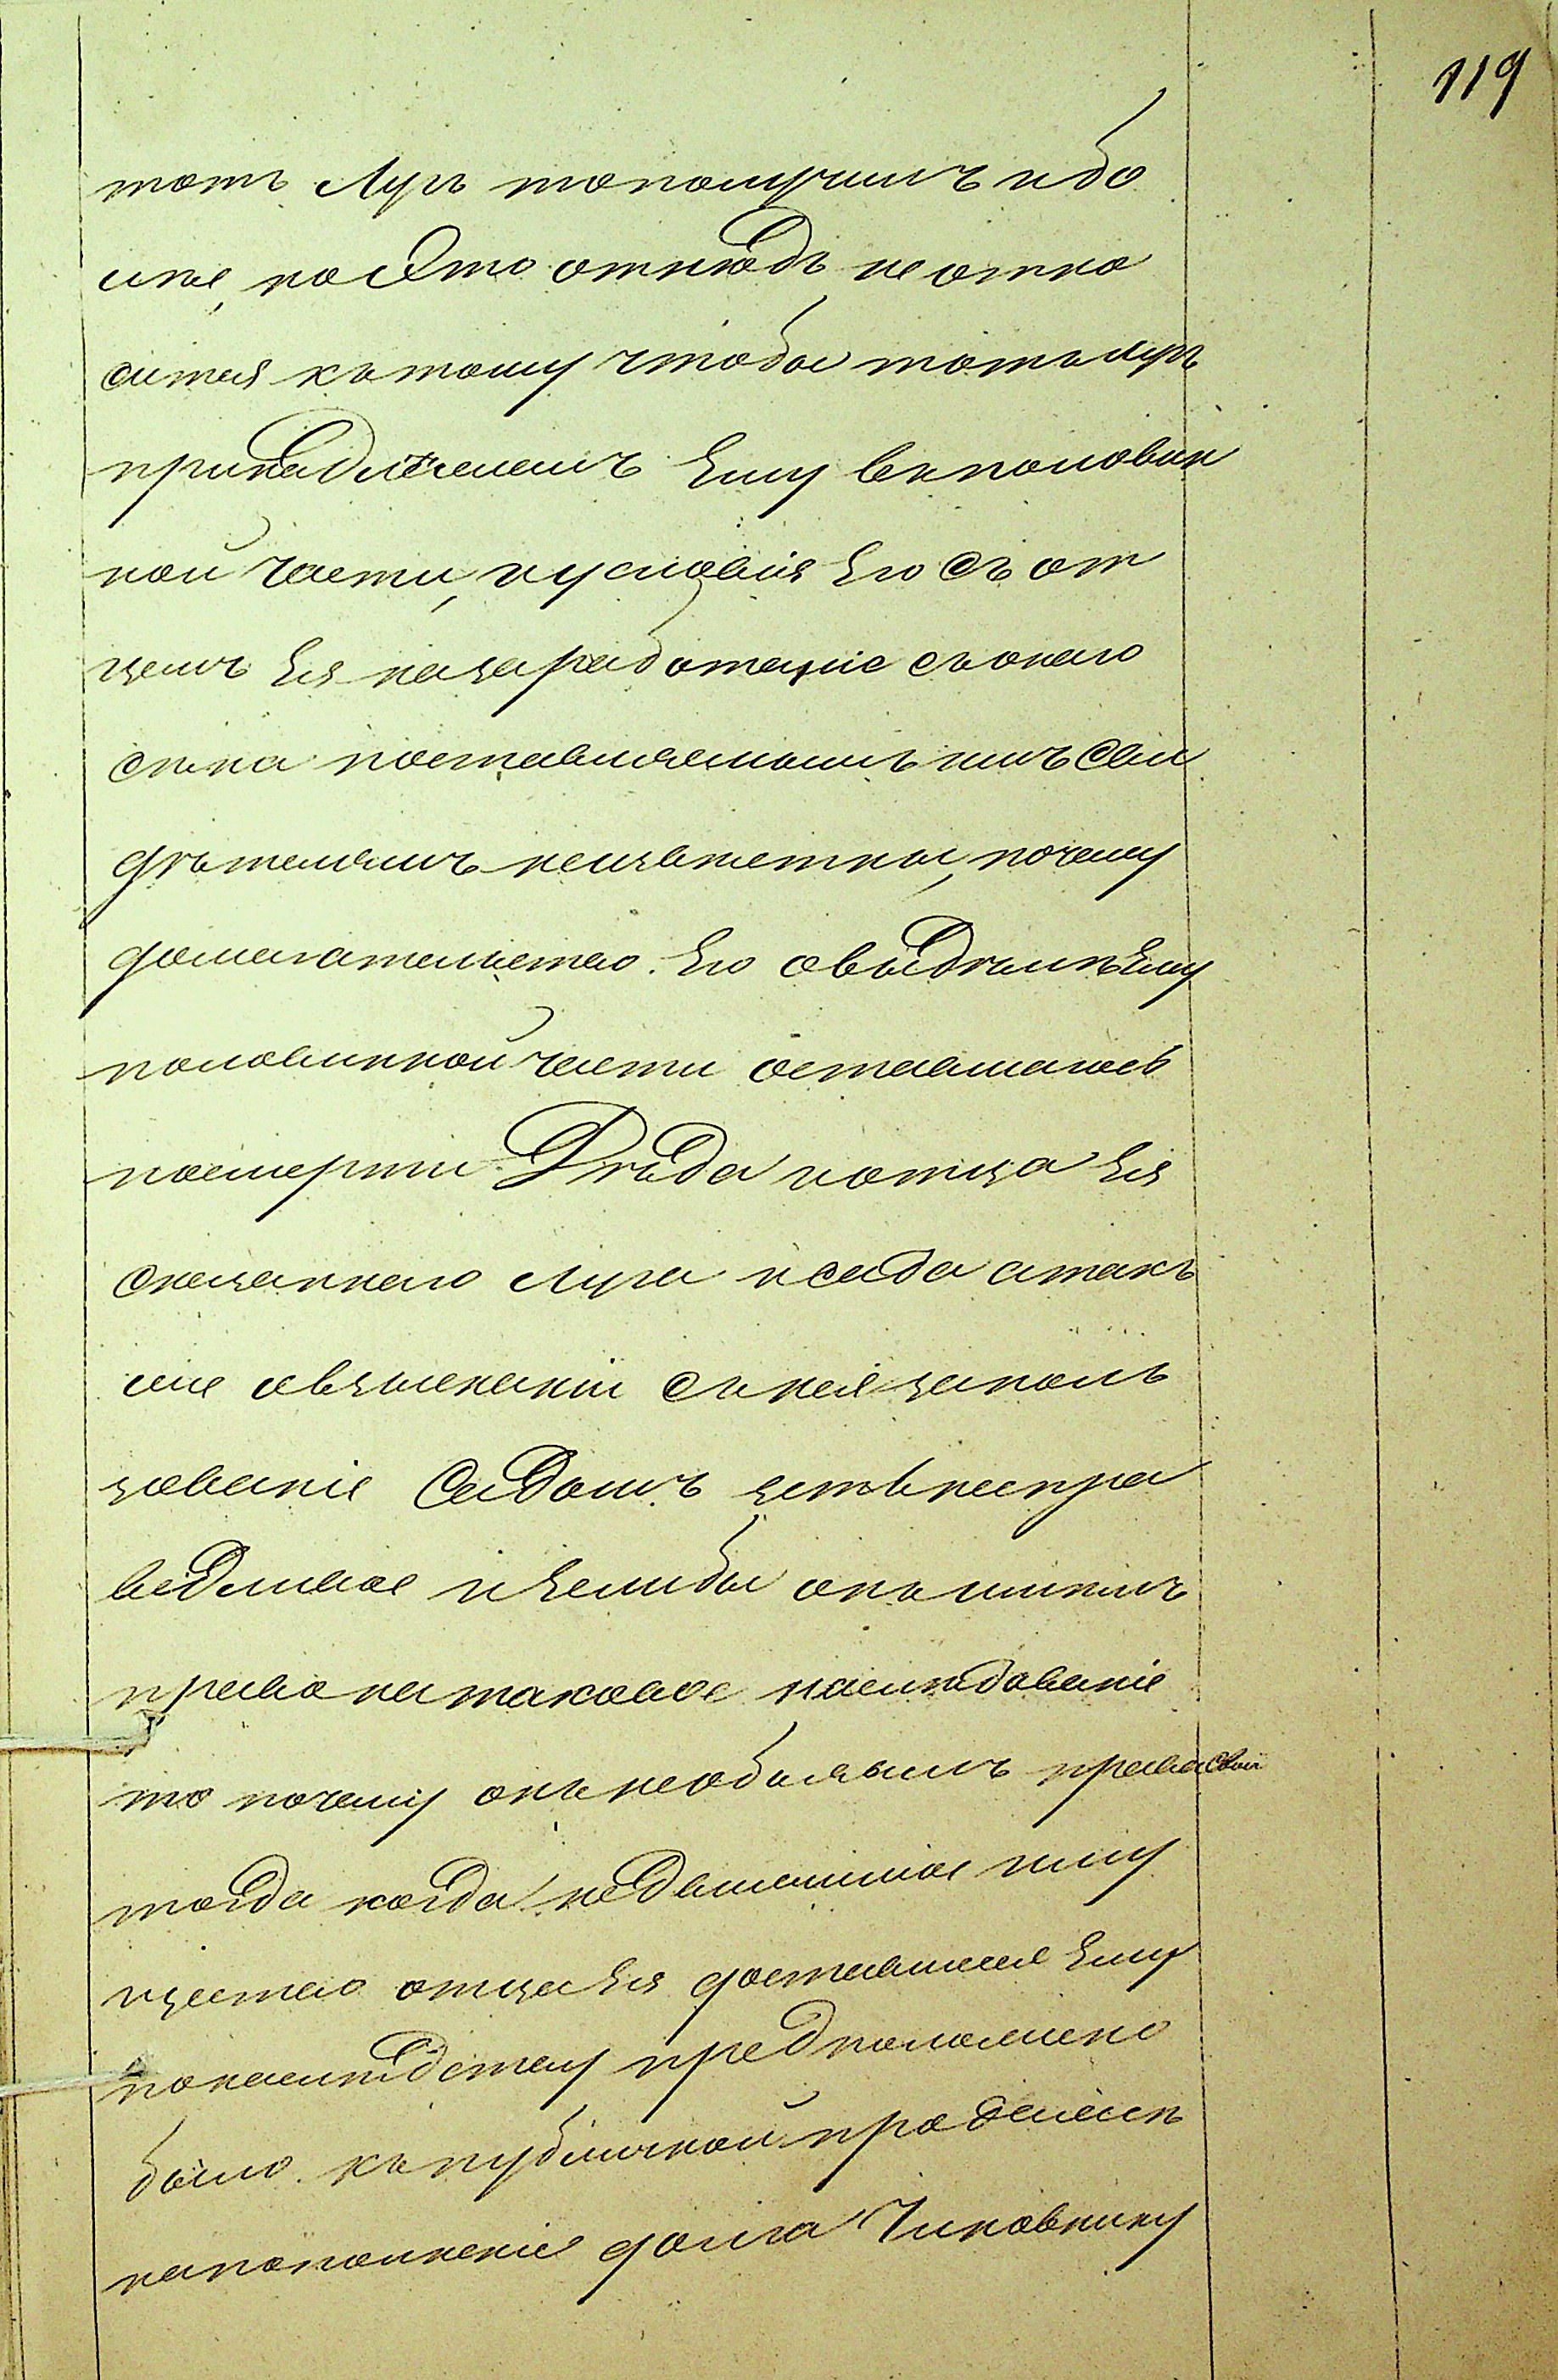 119
тотъ Лугъ то получилъ ибо
лѣе, но это отнюдь не отно
сится къ тому чтобы тотъ лугъ
принадлежалъ Ему въ половин
ной части, и условія Его съ от
цемъ Ея на заработаніе съ онаго
сѣна поставляемымъ имъ сви
дѣтелямъ неизвѣстны, почему
домагательство Его о выдѣлѣ Ему
половинной части оставшагося
по смерти Дѣда и отца Ея
сказаннаго Луга и сада а такъ
же о взысканіи съ нея за поль
зованіе Садомъ есть неспра
ведливое и Если бы онъ имѣлъ
право на таковое наслѣдованіе
то почему онъ не объявилъ права свои
тогда когда недвижимое иму
щество отца Ея доставшееся Ему
по наслѣдству предположено
было къ публичной продажѣ
на пополненіе долга Чиновнику